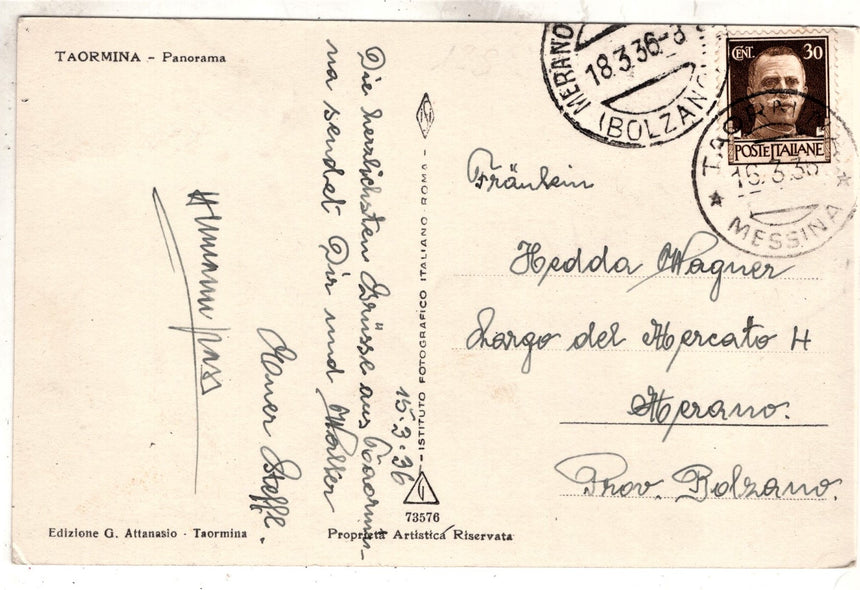 TAORMINA - Panorama
Die herzlichsten Grüsse aus Taormi-
na sendet Dir und Walter
Euer Steffl.
15.3.36
ISTITUTO FOTOGRAFICO ITALIANO ROMA
73576
Edizione G. Attanasio - Taormina
Proprietà Artistica Riservata
MERANO
18.3.36-8
(BOLZANO)
CENT. 30
POSTE ITALIANE
TAORMINA
16.3.36
MESSINA
Fräulein
Hedda Wagner
Largo del Mercato 4
Merano.
Prov. Bolzano.